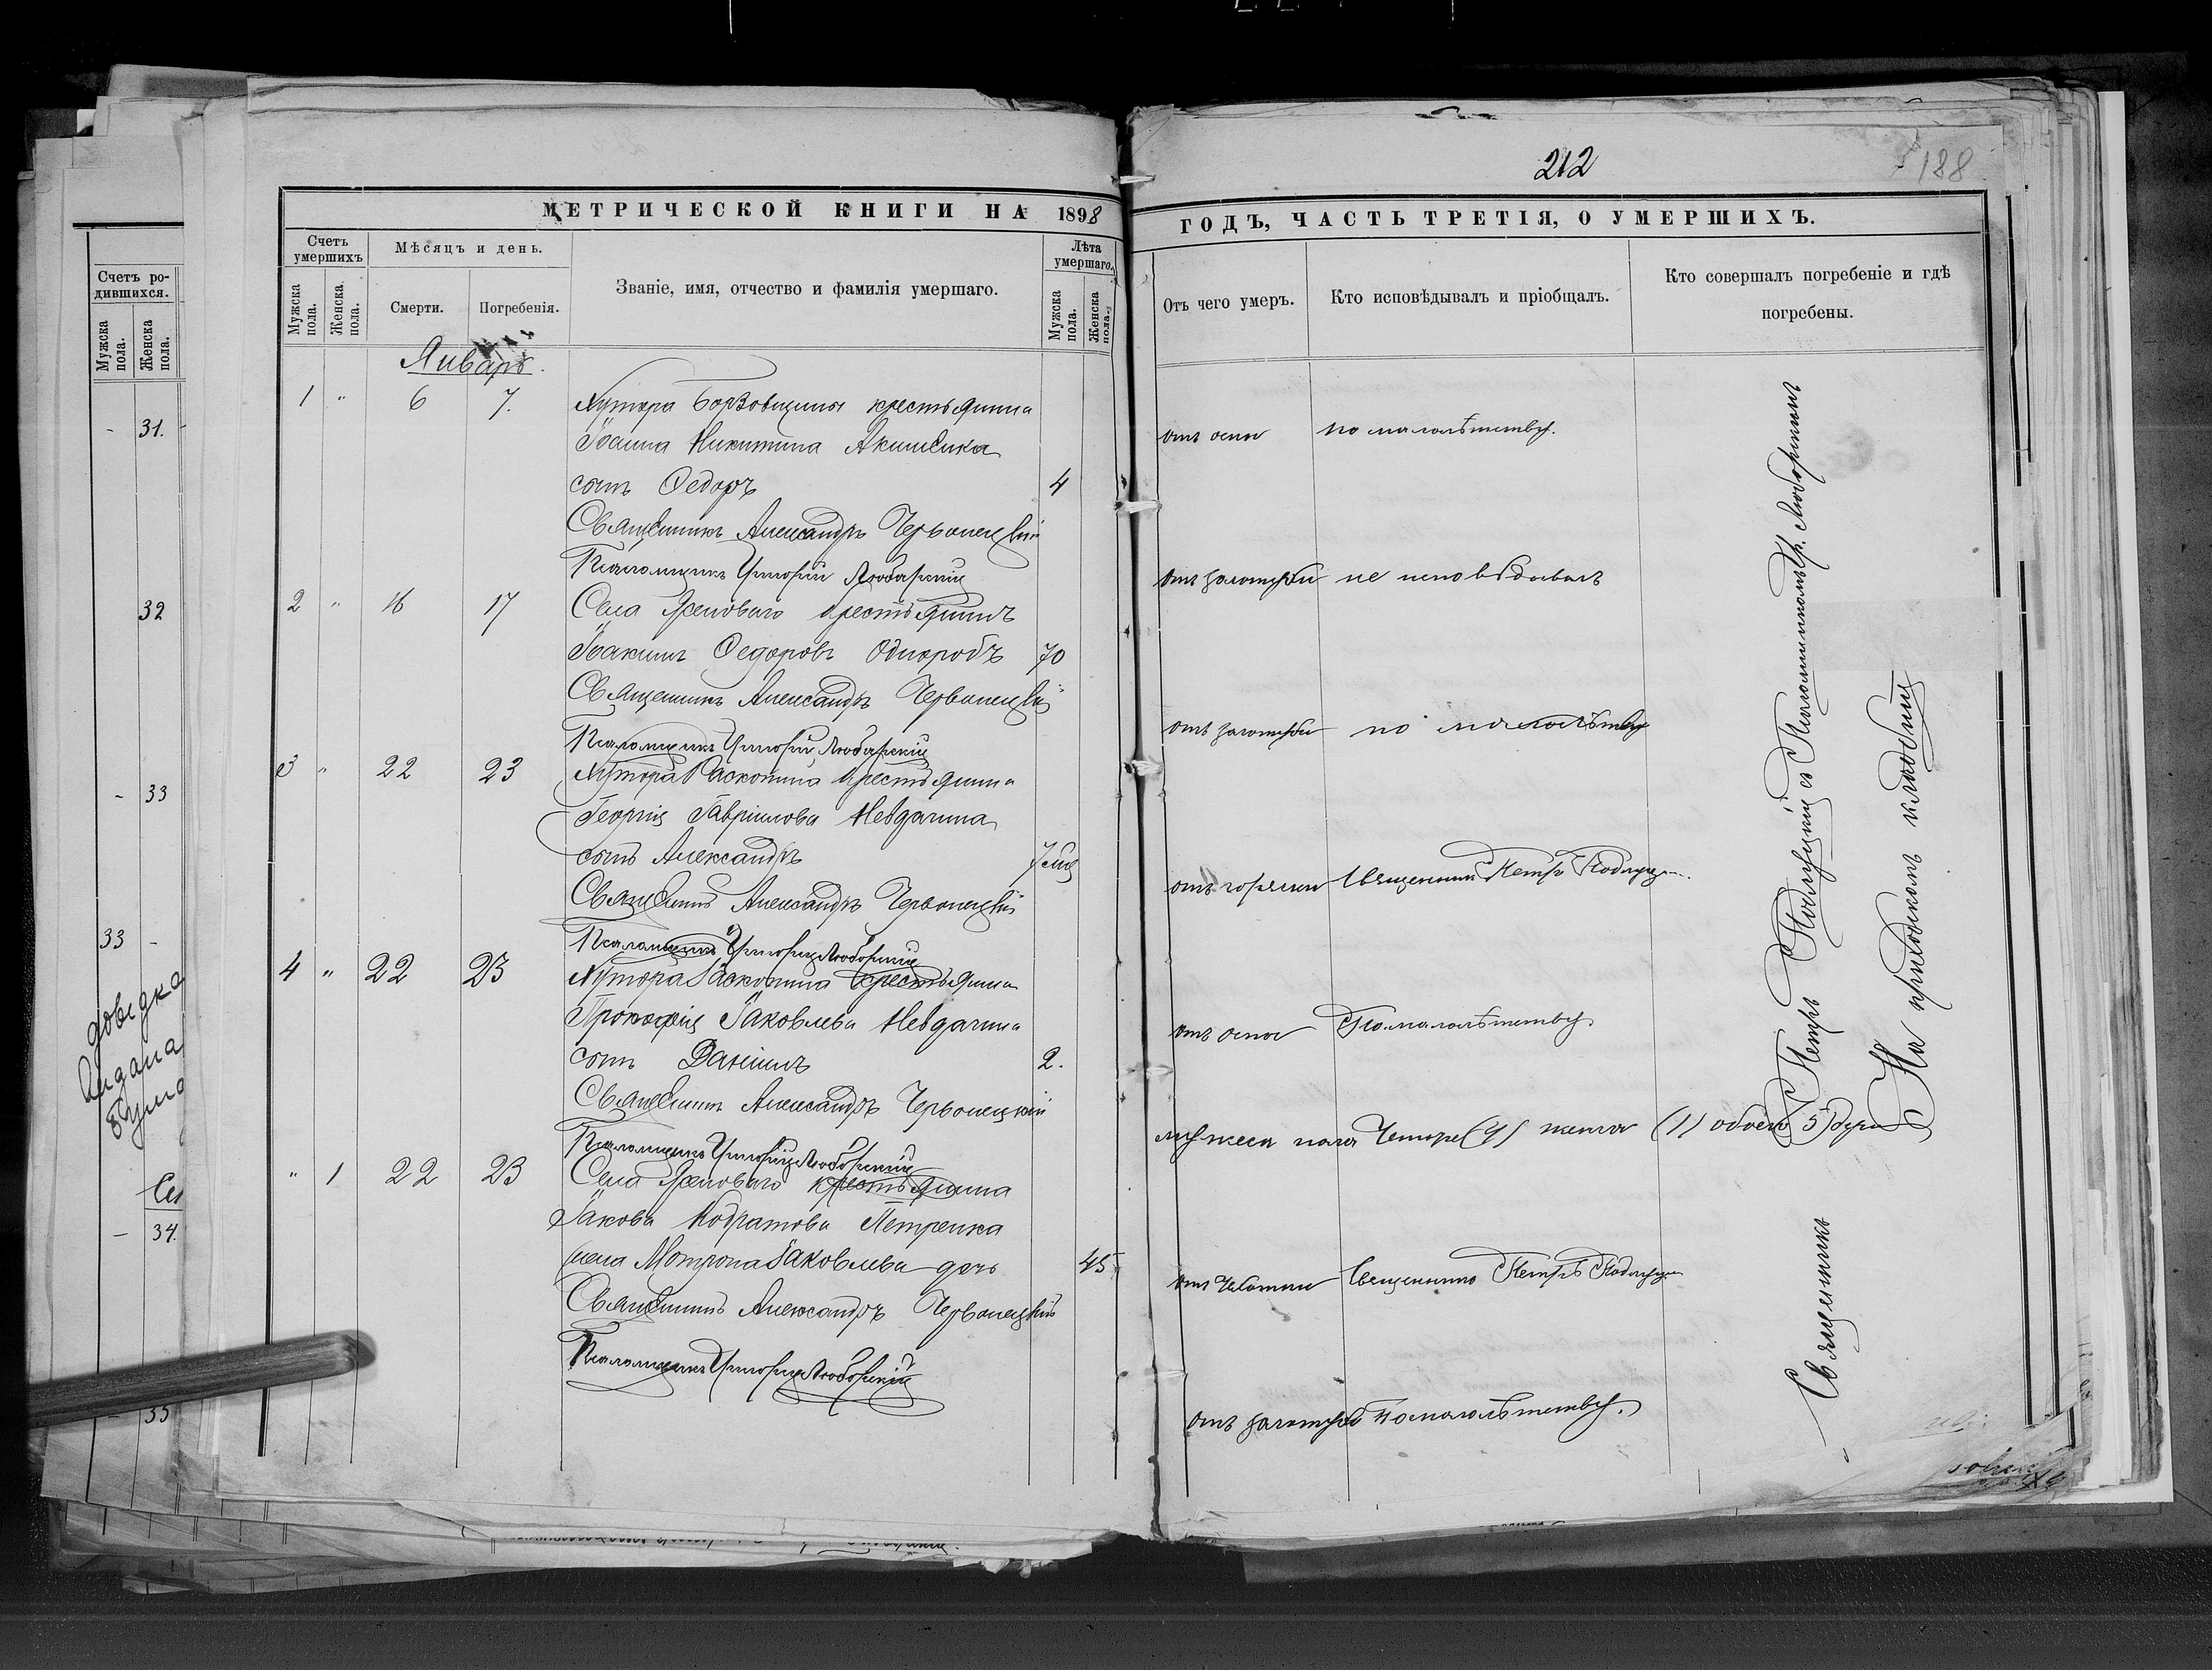 212
188
МЕТРИЧЕСКОЙ КНИГИ НА 1898
ГОДЪ, ЧАСТЬ ТРЕТІЯ, О УМЕРШИХЪ.
Счетъ ро-
дившихся.
Мужска
пола.
Женска
пола.
- 31.
32
- 33
33 -
довідка
видана
- 34.
- 35
Счетъ
умершихъ
Мѣсяцъ и день.
Званіе, имя, отчество и фамилія умершаго.
Лѣта
умершаго.
Мужска
пола.
Женска
пола.
Смерти.
Погребенія.
Мужска
пола.
Женска
пола.
Отъ чего умеръ.
Кто исповѣдывалъ и пріобщалъ.
Кто совершалъ погребеніе и гдѣ
погребены.
Январь.
1 " 6 7. Хутора Борзовщины крестьянина
Іоанна Никитина Акименка
сынъ Ѳедоръ 4
Священникъ Александръ Червонецкій
Псаломщикъ Григорій Любарскій
2 " 16 17 Села крестьянинъ
Іоакимъ Ѳедоровъ Однородъ 70
Священникъ Александръ Червонецкій
Псаломщикъ Григорій Любарскій
3 " 22 23 Хутора Раскопина крестьянина
Георгія Гавріилова Невдачина
сынъ Александръ 7 мц
Священникъ Александръ Червонецкій
Псаломщикъ Григорій Любарскій
4 " 22 23 Хутора Раскопина крестьянина
Прокофія Іаковлева Невдачина
сынъ Даніилъ 2.
Священникъ Александръ Червонецкій
Псаломщикъ Григорій Любарскій
" 1 22 23 Села крестьянина
Іакова Кодратова Петренка
жена Мотрона Іаковлева дочь 45
Священникъ Александръ Червонецкій
Псаломщикъ Григорій Любарскій
отъ оспы по малолѣтству.
отъ золотухи не исповѣдывалъ
отъ золотухи по малолѣтству
отъ горячки Священникъ Петръ
отъ оспы По малолѣтству.
мужеска пола Четыре (4) женска (1) обоего (5) душъ
отъ чахотки Священникъ Петръ
отъ золотухи По малолѣтству.
Священникъ Петръ съ Псаломщикомъ Гр. Любарскимъ
На приходскомъ кладбищѣ